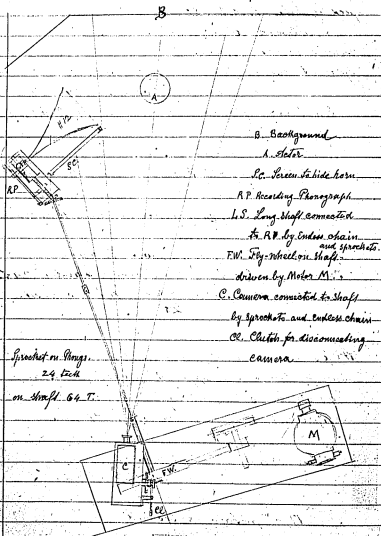 B
A
H 12
SC.
R.P.
B. Background
A. Actor
Sc. Screen to hide horn
R.P. Recording Phonograph
L.S. Long shaft connected
to R.P. by Endless chain
and sprockets.
F.W. Fly-wheel on shaft.
driven by Motor M.
C. Camera connected to shaft
by sprockets and endless chain
Cl. Clutch for disconnecting
camera
Sprocket on Phong.
24 teeth
on shaft 64 T.
C
F.W.
M
Cl